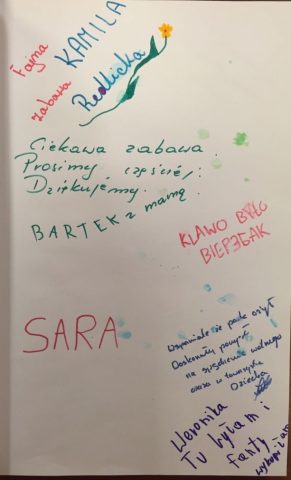 Fajna
zabawa
KAMILA
Redlicka
Ciekawa zabawa.
Prosimy częściej.
Dziękujemy.
BARTEK z mamą
KLAWO BYŁO
BIERZBAK
SARA
Wspaniale się park ożył
Doskonały pomysł
na spędzenie wolnego
czasu w towarzystwie
Dziecka
Weronika
Tu byłam i
fanty
wykopiłam